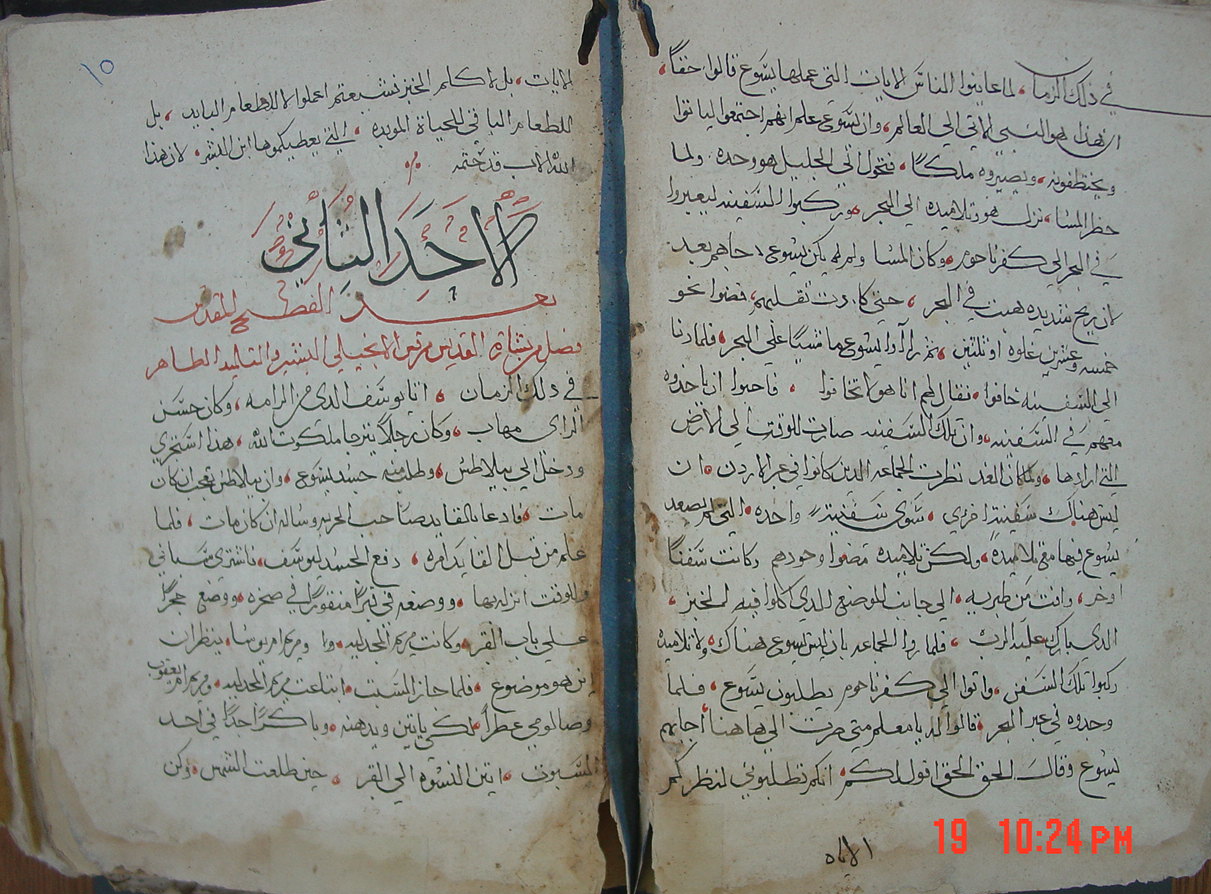 في ذلك الزمان لما عاينوا الناس الايات التي عملها يسوع قالوا حقاً
ان هذا هو النبي الاتي الي العالم وان يسوع علم انهم اجتمعوا لياتوا
ويختطفونه ويصيروه ملكاً فتحول الي الجليل هو وحده ولما
حظر المسا نزل هو وتلاميذه الي البحر وركبوا السفينه ليعبروا
في البحر الي كفرناحوم وكان المسا ولم يكن يسوع جاهم بعد
لان ريح شديده هبت في البحر حتي كادت تقلبهم فمضوا نحو
خمسه وعشرين غلوه او تلتين ثم رأوا يسوع ماشياً علي البحر فلما دنا
الي السفينه خافوا فقال لهم انا هو لا تخافوا فاحبوا ان ياخدوه
معهم في السفينه وان تلك السفينه صارت للوقت الي الارض
التي ارادها ولما كان الغد نظرت الجماعه الدين كانوا في عبر الاردن ان
ليس هناك سفينة اخري سوي سفينة واحده التي لم يصعد
يسوع فيها مع تلاميذه ولكن تلاميذه مضوا وحودهم وكانت سفناً
اوخر واتت من طبريه الي جانب الموضع الدي كانوا فيه الخبز
الدي بارك عليه الرب فلما راوا الجماعه بان ليس يسوع هناك ولا تلاميذه
ركبوا تلك السفن واتوا الي كفرناحوم يطلبون يسوع فلما
وجدوه في عبر البحر قالوا له يا معلم متي صرت الي هاهنا اجابهم
يسوع وقال الحق الحق اقول لكم انكم تطلبوني لنظركم
الاياه
١٥
لايات بل لاكلم الخبز فشبعتم اعملوا لا للطعام البايد بل
للطعام الباقي للحياة الموبده التي يعطيكموها ابن البشر لان هذا
الله الاب قد ختمه
الاحد الثاني
بعد الفصح المقدس
فصل من بشارة القديس مرقس الانجيلي البشير والتلميذ الطاهر
في دلك الزمان اتا يوسف الدي من الرامه وكان حسن
الراي مهاب وكان رجلاً يترجا ملكوت الله هذا استجري
ودخل الي بيلاطس وطلب منه جسد يسوع وان بيلاطس تعجب ان كان
مات فادعا بالقايد صاحب الحربه وساله ان كان مات فلما
علم من قبل القايد امره دفع الجسد ليوسف فاشتري سباني
وللوقت انزله بها ووضعه في قبراً منقوراً في صخره ووضع حجراً
علي باب القبر وكانت مريم المجدليه ومريم ام يوسا ينظران
اين هو موضوع فلما جاز السبت ابتاعت مريم المجدليه ومريم ام يعقوب
وصالومي عطراً لكي ياتين ويدهنه وباكراً جداً في احد
السبوت اتين النسوه الي القبر حين طلعت الشمس وكن
19 10:24 PM